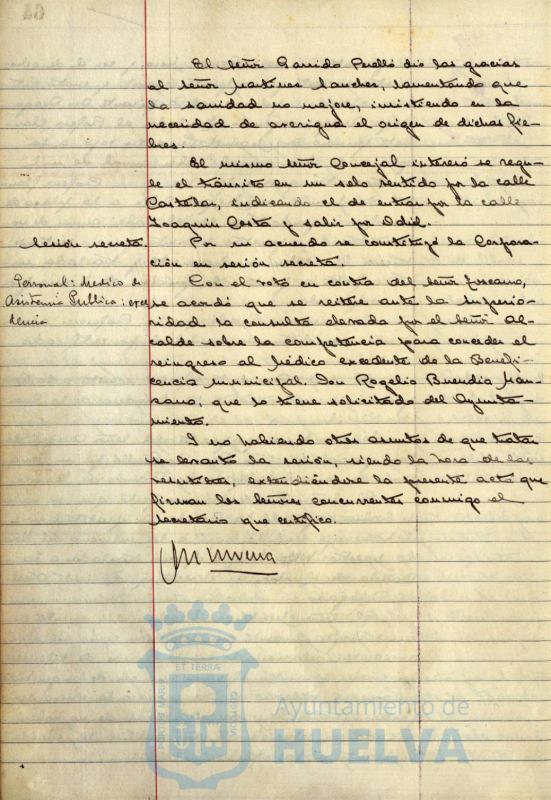 El Señor Garrido Perelló dio las gracias
al Señor Martinez Sanchez, lamentando que
la sanidad no mejore, insistiendo en la
necesidad de averiguar el origen de dichas fie-
bres.
El mismo Señor Concejal interesó se regu-
le el tránsito en un solo sentido por la calle
Castelar, indicando el de entrar por la calle
Joaquin Costa y salir por Odiel.
Sesión secreta.
Por un acuerdo se constituyó la Corpora-
ción en sesión secreta.
Personal: Medico de
Asistencia Publica: exce
dencia
Con el voto en contra del Señor
se acordó que se reitere ante la Superio-
ridad la consulta elevada por el Señor Al-
calde sobre la competencia para conceder el
reingreso al Médico excedente de la Benefi-
cencia municipal. Don Rogelio Buendia Man-
zano, que lo tiene solicitado del Ayunta-
miento.
I no habiendo otros asuntos de que tratar
se levantó la sesión, siendo la hora de las
extendiéndose la presente acta que
firman los Señores concurrentes conmigo el
Secretario que certifico.
ET TERRÆ
Ayuntamiento de
HUELVA